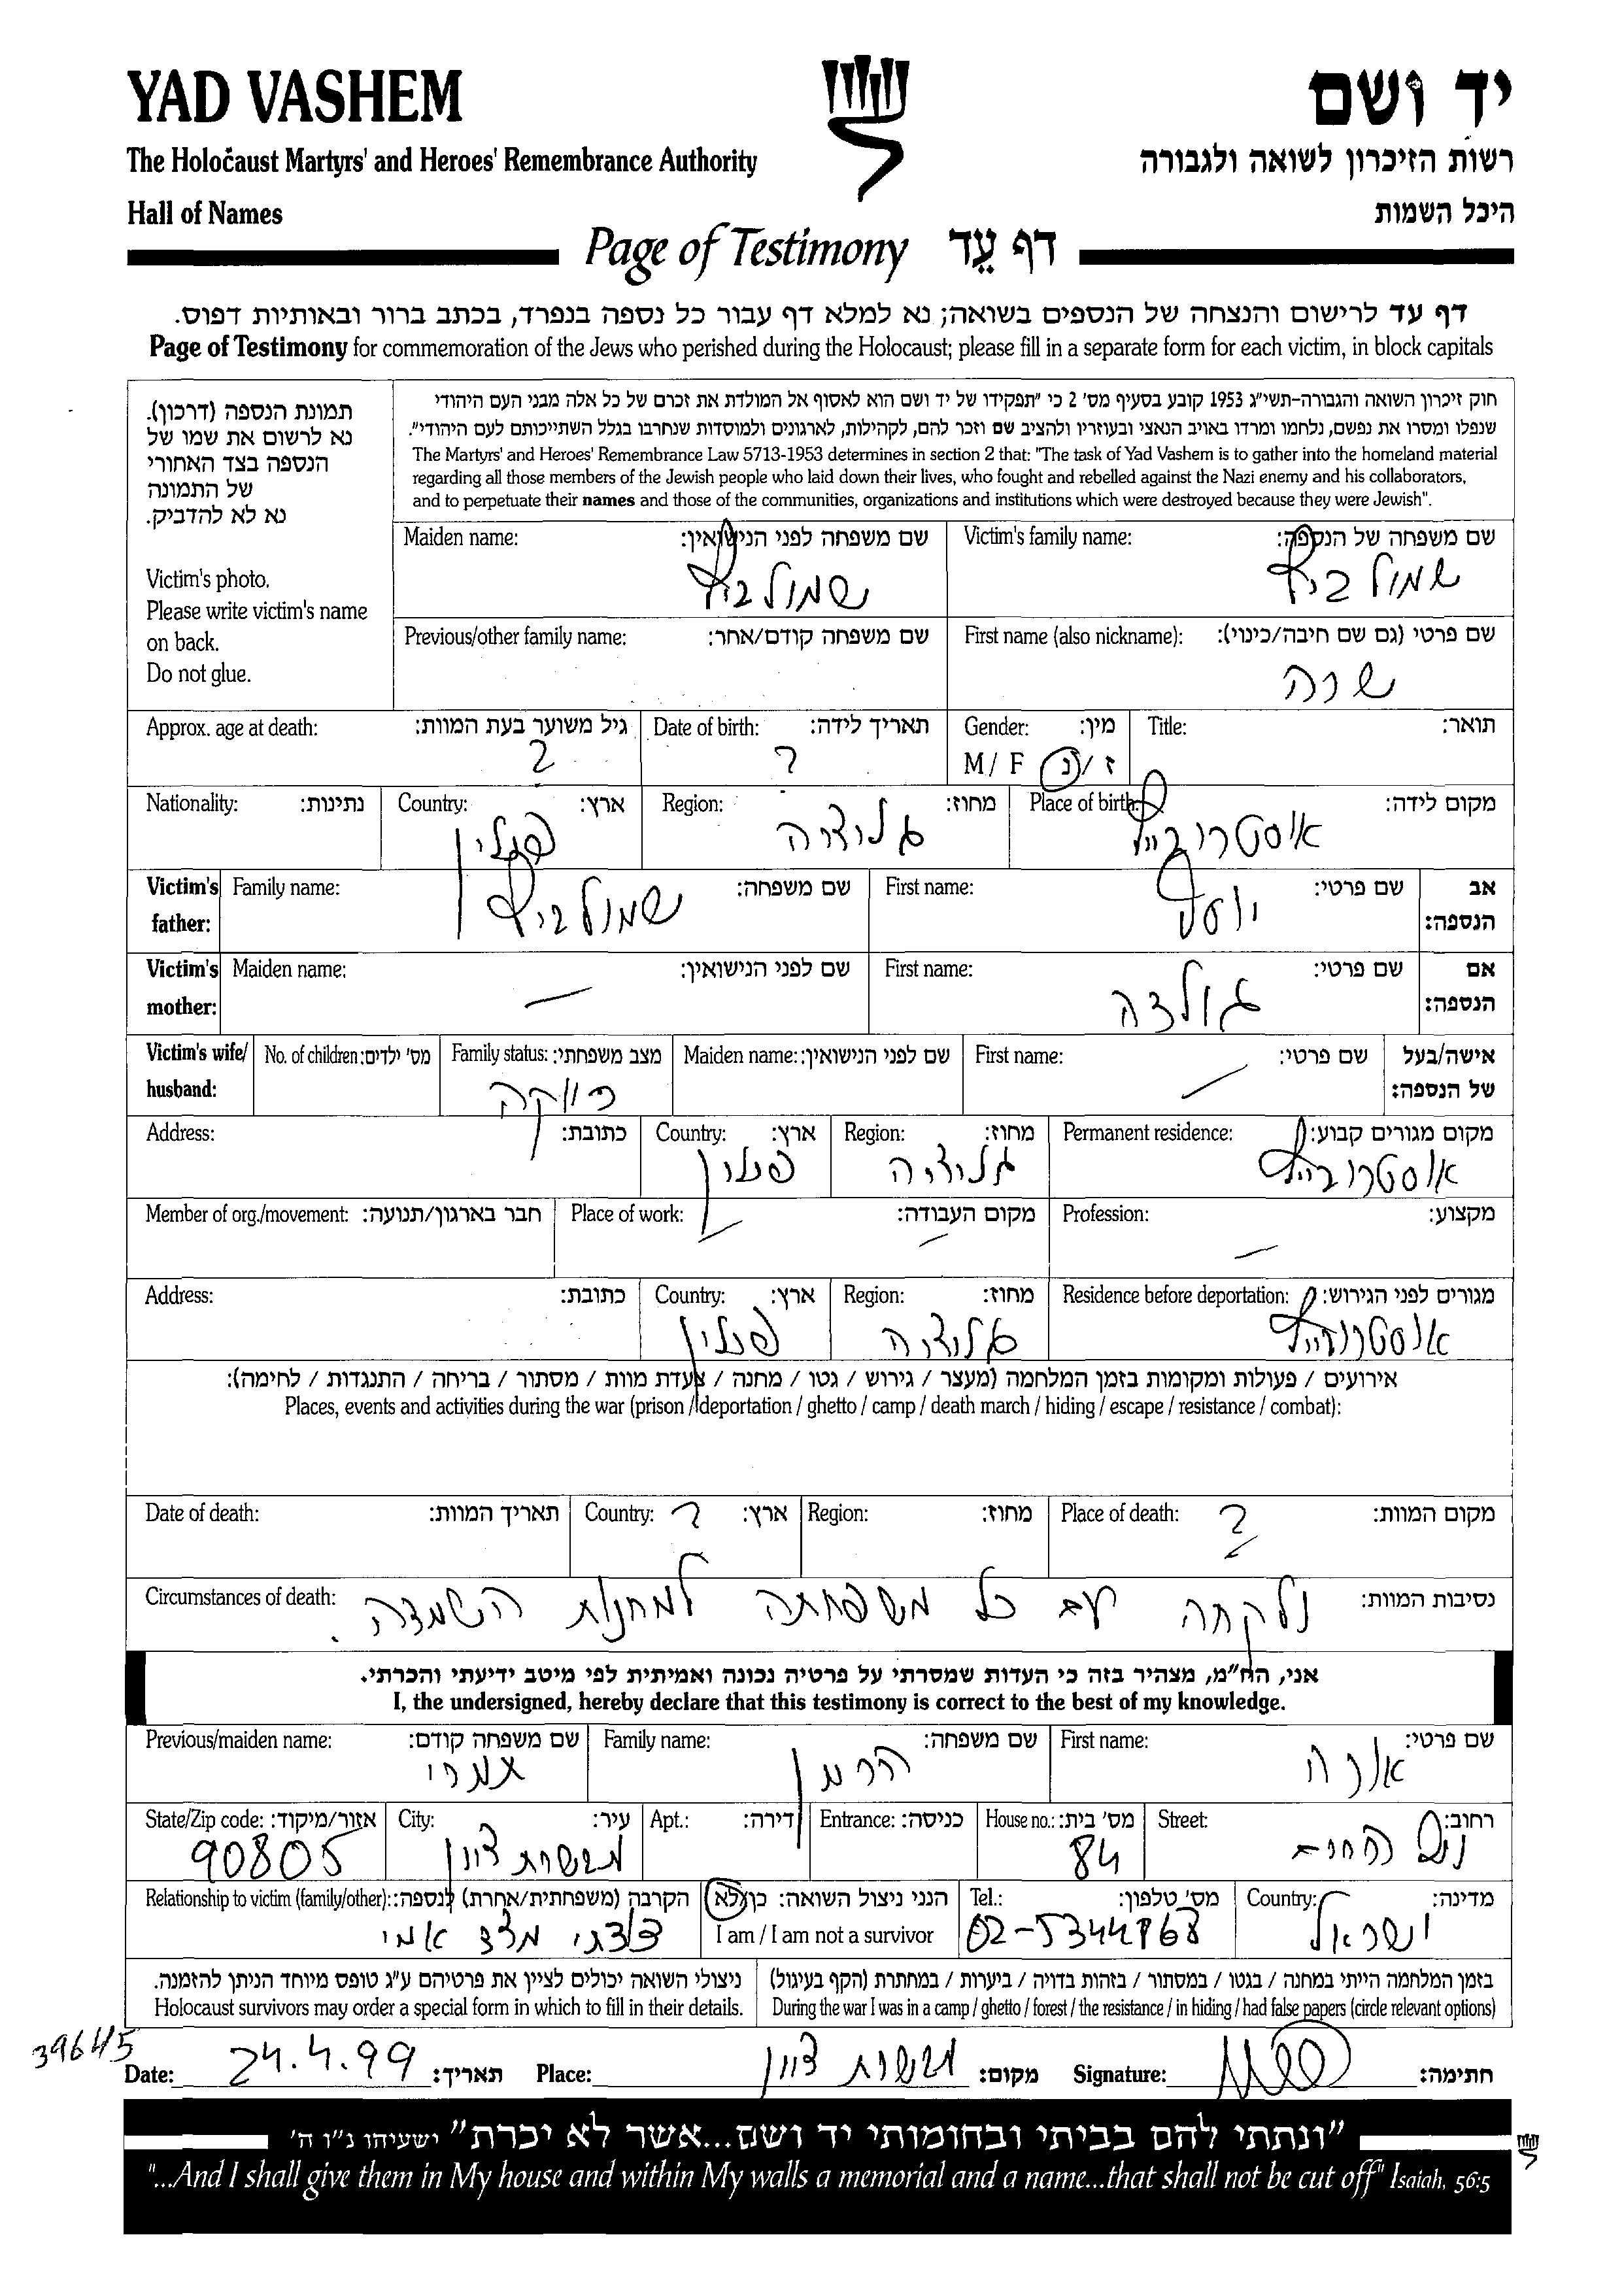 YAD VASHEM
יד ושם
The Holocaust Martyrs' and Heroes' Remembrance Authority
רשות הזיכרון לשואה ולגבורה
Hall of Names
היכל השמות
Page of Testimony דף עֵד
דף עד לרישום והנצחה של הנספים בשואה; נא למלא דף עבור כל נספה בנפרד, בכתב ברור ובאותיות דפוס.
Page of Testimony for commemoration of the Jews who perished during the Holocaust; please fill in a separate form for each victim, in block capitals
תמונת הנספה (דרכון).
נא לרשום את שמו של
הנספה בצד האחורי
של התמונה
נא לא להדביק.
Victim's photo.
Please write victim's name
on back.
Do not glue.
חוק זיכרון השואה והגבורה-תשי"ג 1953 קובע בסעיף מס' 2 כי "תפקידו של יד ושם הוא לאסוף אל המולדת את זכרם של כל אלה מבני העם היהודי
שנפלו ומסרו את נפשם, נלחמו ומרדו באויב הנאצי ובעוזריו ולהציב שם וזכר להם, לקהילות, לארגונים ולמוסדות שנחרבו בגלל השתייכותם לעם היהודי".
The Martyrs' and Heroes' Remembrance Law 5713-1953 determines in section 2 that: "The task of Yad Vashem is to gather into the homeland material
regarding all those members of the Jewish people who laid down their lives, who fought and rebelled against the Nazi enemy and his collaborators,
and to perpetuate their names and those of the communities, organizations and institutions which were destroyed because they were Jewish".
Victim's family name: שם משפחה של הנספה:
שמולביץ
Maiden name: שם משפחה לפני הנישואין:
שמולביץ
First name (also nickname): שם פרטי (גם שם חיבה/כינוי):
שרה
Previous/other family name: שם משפחה קודם/אחר:
Title: תואר:
Gender: מין:
M / F ז / נ
Date of birth: תאריך לידה:
?
Approx. age at death: גיל משוער בעת המוות:
2
Place of birth: מקום לידה:
Region: מחוז:
גליציה
Country: ארץ:
פולין
Nationality: נתינות:
Victim's father: אב הנספה:
First name: שם פרטי:
יוסף
Family name: שם משפחה:
שמולביץ
Victim's mother: אם הנספה:
First name: שם פרטי:
גולדה
Maiden name: שם לפני הנישואין:
—
Victim's wife/ husband: אישה/בעל של הנספה:
First name: שם פרטי:
—
Maiden name: שם לפני הנישואין:
Family status: מצב משפחתי:
רווקה
No. of children: מס' ילדים:
Permanent residence: מקום מגורים קבוע:
Region: מחוז:
גליציה
Country: ארץ:
פולין
Address: כתובת:
Profession: מקצוע:
—
Place of work: מקום העבודה:
—
Member of org./movement: חבר בארגון/תנועה:
Residence before deportation: מגורים לפני הגירוש:
Region: מחוז:
גליציה
Country: ארץ:
פולין
Address: כתובת:
אירועים / פעולות ומקומות בזמן המלחמה (מעצר / גירוש / גטו / מחנה / צעדת מוות / מסתור / בריחה / התנגדות / לחימה):
Places, events and activities during the war (prison / deportation / ghetto / camp / death march / hiding / escape / resistance / combat):
Place of death: ? מקום המוות:
Region: מחוז:
Country: ? ארץ:
Date of death: תאריך המוות:
Circumstances of death: נסיבות המוות:
נלקחה עם כל משפחתה למחנות השמדה.
אני, הח"מ, מצהיר בזה כי העדות שמסרתי על פרטיה נכונה ואמיתית לפי מיטב ידיעתי והכרתי.
I, the undersigned, hereby declare that this testimony is correct to the best of my knowledge.
First name: שם פרטי:
Family name: שם משפחה:
Previous/maiden name: שם משפחה קודם:
Street: רחוב:
House no.: מס' בית:
84
Entrance: כניסה:
Apt.: דירה:
City: עיר:
מבשרת ציון
State/Zip code: אזור/מיקוד:
90805
Country: מדינה:
ישראל
Tel.: מס' טלפון:
02-5344868
הנני ניצול השואה: כן/לא
I am / I am not a survivor
Relationship to victim (family/other): הקרבה (משפחתית/אחרת) לנספה:
מצד אמי
בזמן המלחמה הייתי במחנה / בגטו / במסתור / בזהות בדויה / ביערות / במחתרת (הקף בעיגול)
During the war I was in a camp / ghetto / forest / the resistance / in hiding / had false papers (circle relevant options)
ניצולי השואה יכולים לציין את פרטיהם ע"ג טופס מיוחד הניתן להזמנה.
Holocaust survivors may order a special form in which to fill in their details.
39645
Date: 24.4.99 תאריך: Place: מבשרת ציון מקום: Signature: חתימה:
"ונתתי להם בביתי ובחומותי יד ושם...אשר לא יכרת" ישעיהו נ"ו ה'
"...And I shall give them in My house and within My walls a memorial and a name...that shall not be cut off" Isaiah, 56:5